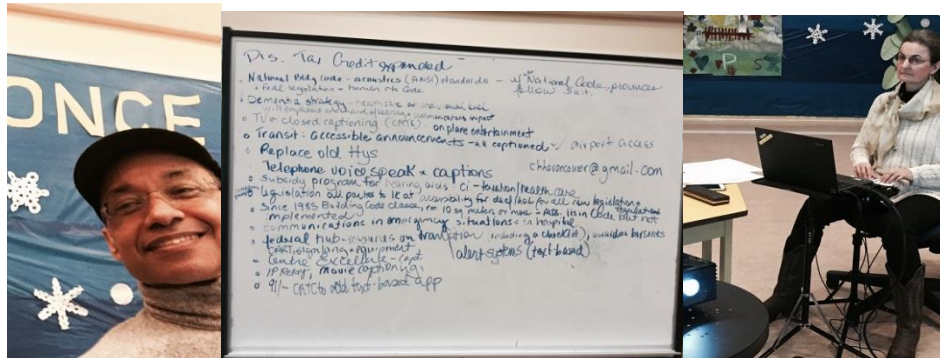 ONCE
Dis. Tax Credit expanded -
National Bldg Code - acoustics (ANSI) standards - if National Code, provinces
follow suit.
Fed legislation - human rts Code
Dementia strategy -
communications impact
TV closed captioning (CRTC) on plane entertainment
Transit: accessible announcements - all captioned airport access
Replace old Hys
Telephone voice speak + captions
chhavancouver@gmail.com
Subsidy program for hearing aids CI - taxation/health care
legislation all parties to look at accessibility for deaf/hoh for all new legislation +
Since 1985 Building Code clause, rm 10 sq meters or more + ass. lis in Code but not
implemented
communications in emergency situations + in hospital
federal hub - resources on transition including a checklist),
equipment
alert systems (text based)
Centre Excellence - capt.
IP Relay, movie captioning,
911 - CRTC to add text-based app
P S